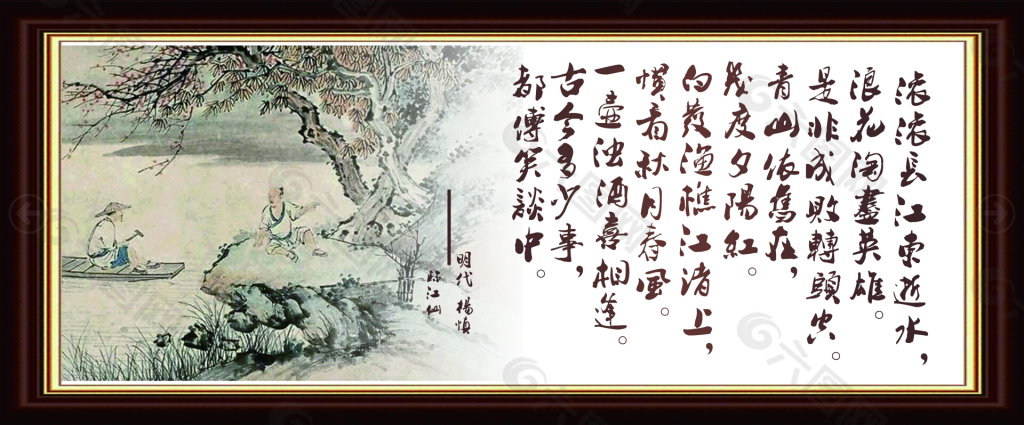 滚滚長江東逝水，
浪花淘盡英雄。
是非成敗轉頭空。
青山依舊在，
幾度夕陽紅。
白發漁樵江渚上，
慣看秋月春風。
一壺浊酒喜相逢。
古今多少事，
都傅笑談中。
明代 楊慎
臨江仙
六图网